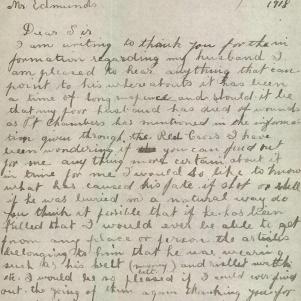 Mr. Edmunds 1918
Dear Sir
I am writing to thank you for the in
formation regarding my husband I
am pleased to hear anything that can
point to his whereabouts it has been
a time of long and should it be
that my poor husband has died of wounds
as Pt Chambers has mentioned in the informa
tion given through the Red Cross I have
been wondering if you can find out
for me any thing more certain about it
in time for me I would so like to know
what has caused his fate if shot or shell
if he was burried in a natural way do
you think it posible that if he has been
killed that I would ever be able to get
from any place or person the articles
belonging to him that he was wearing
such as his belt and wallet watch
etc I would be so pleased if I could ever find
out the going of them again thanking you for